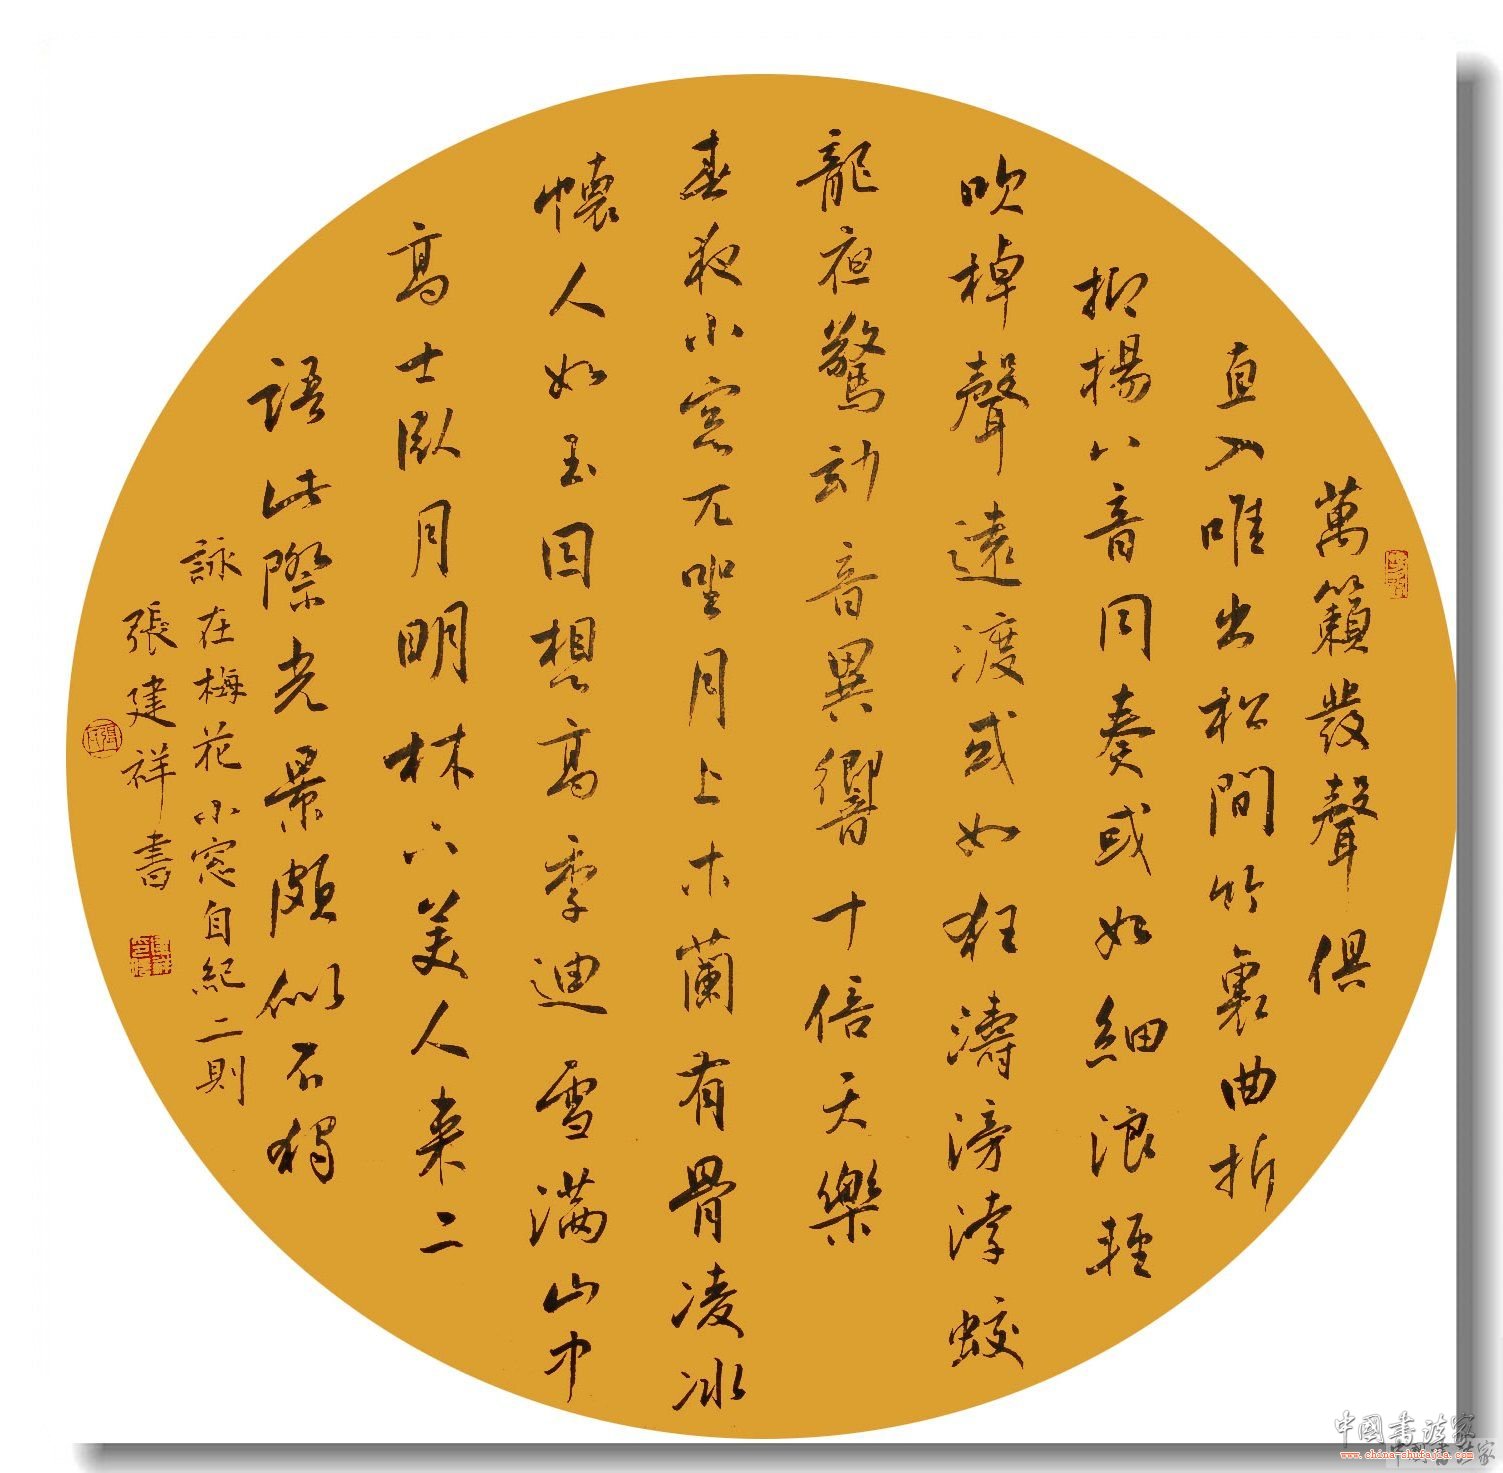 萬籟發聲俱
直入唯出松間竹裏曲折
抑揚八音同奏或如細浪輕
吹棹聲遠渡或如狂濤滂渀蛟
龍夜驚動音異響十倍天樂
春夜小窓兀坐月上木蘭有骨凌冰
懷人如玉因想高季迪雪满山中
高士臥月明林下美人来二
語此際光景頗似不獨
詠在梅花小窓自紀二則
張建祥書
中國書法家
www.china-shufajia.com